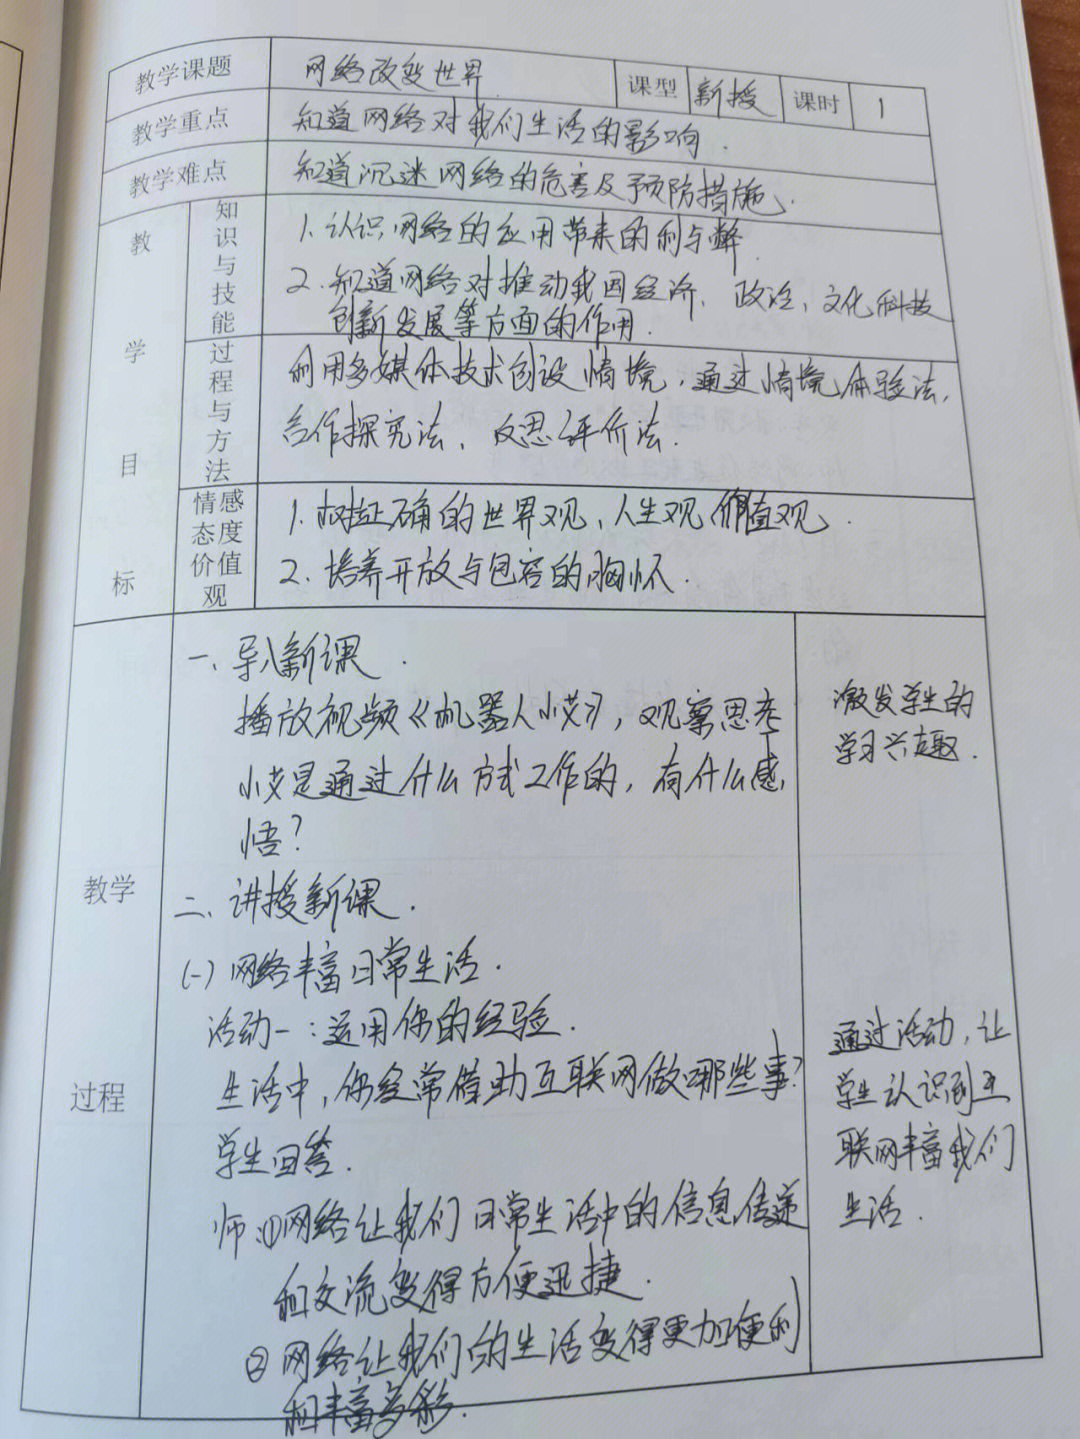 教学课题 网络改变世界 课型 新授 课时 1
教学重点 知道网络对我们生活的影响.
教学难点 知道沉迷网络的危害及预防措施.
教学目标
知识与技能
1. 认识网络的应用带来的利与弊.
2. 知道网络对推动我国经济、政治、文化、科技
创新发展等方面的作用.
过程与方法
利用多媒体技术创设情境，通过情境体验法,
合作探究法、反思评价法.
情感态度价值观
1. 树立正确的世界观、人生观、价值观.
2. 培养开放与包容的胸怀.
教学过程
一、导入新课.
播放视频《机器人小艾》, 观察思考
小艾是通过什么方式工作的, 有什么感
悟?
激发学生的
学习兴趣.
二、讲授新课.
(一) 网络丰富日常生活.
活动一: 运用你的经验.
生活中, 你经常借助互联网做哪些事?
学生回答.
师:①网络让我们日常生活中的信息传递
和交流变得方便迅捷.
②网络让我们的生活变得更加便利
和丰富多彩.
通过活动, 让
学生认识到互
联网丰富我们
生活.